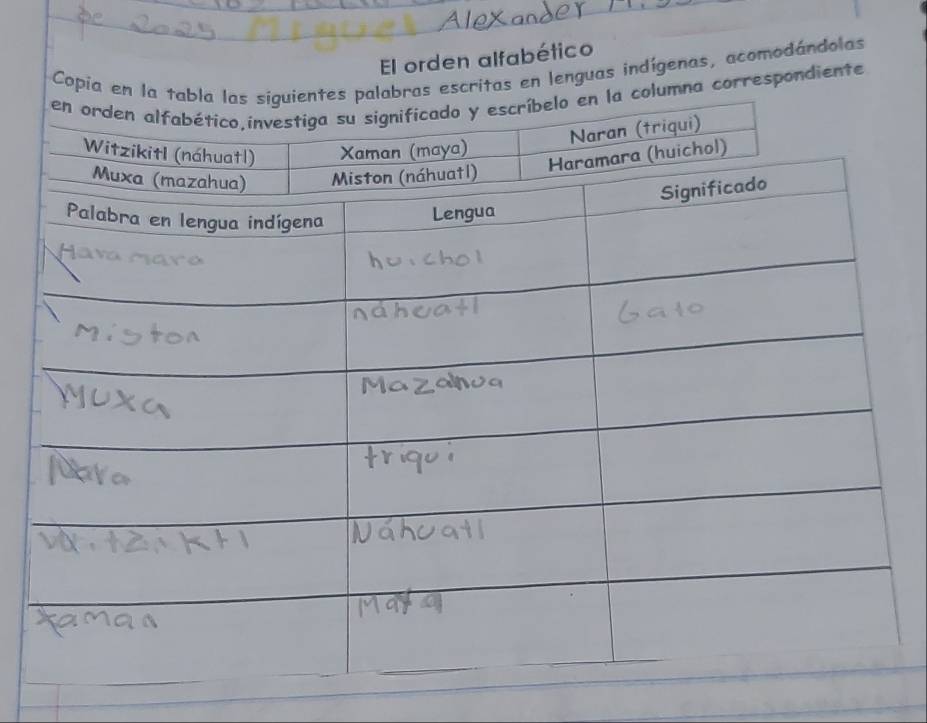 de 2025 Miguel Alexander
El orden alfabético
Copia en la tabla las siguientes palabras escritas en lenguas indígenas, acomodándolas
en orden alfabético,investiga su significado y escríbelo en la columna correspondiente
Witzikitl (náhuatl) Xaman (maya) Naran (triqui)
Muxa (mazahua) Miston (náhuatl) Haramara (huichol)
Palabra en lengua indígena Lengua Significado
Haramara huichol
Miston náhuatl Gato
Muxa Mazahua
Nara triqui
Witziktl Náhuatl
Xaman Maya